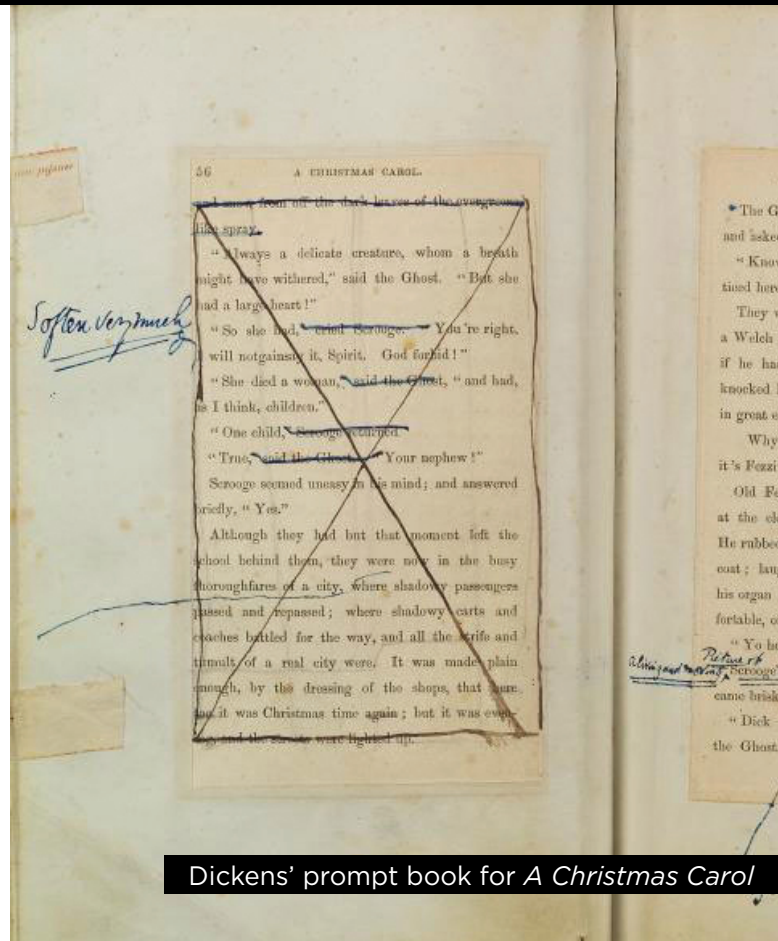 56 A CHRISTMAS CAROL.
and snow from off the dark leaves of the evergreens
like spray.
"Always a delicate creature, whom a breath
might have withered," said the Ghost. "But she
had a large heart!"
Soften very much
"So she had," cried Scrooge. "You're right.
will notgainsay it, Spirit. God forbid!"
"She died a woman," said the Ghost, "and had,
as I think, children."
"One child," Scrooge returned.
"True," said the Ghost. "Your nephew!"
Scrooge seemed uneasy in his mind; and answered
briefly, "Yes."
Although they had but that moment left the
school behind them, they were now in the busy
thoroughfares of a city, where shadowy passengers
passed and repassed; where shadowy carts and
coaches battled for the way, and all the strife and
tumult of a real city were. It was made plain
enough, by the dressing of the shops, that here
too it was Christmas time again; but it was even-
ing, and the streets were lighted up.
The G
and aske
"Know
ticed here
They w
a Welch
if he ha
knocked
in great e
Why
it's Fezzi
Old Fe
at the cl
He rubbe
coat; lau
his organ
fortable, o
"Yo ho
Picture of
Scrooge'
came brisk
"Dick
the Ghost
Dickens' prompt book for A Christmas Carol